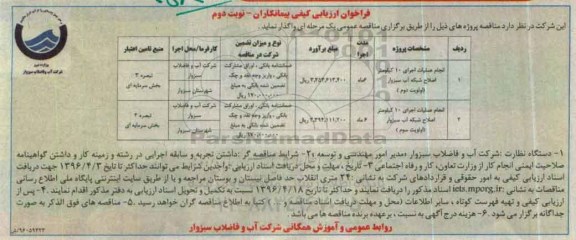 فراخوان ارزیابی کیفی پیمانکاران - نوبت دوم
این شرکت در نظر دارد مناقصه پروژه های ذیل را از طریق برگزاری مناقصه عمومی یک مرحله ای واگذار نماید.
ردیف مشخصات پروژه مدت اجرا مبلغ برآورد نوع و میزان تضمین شرکت در مناقصه کارفرما/محل اجرا منبع تامین اعتبار
۱ انجام عملیات اجرای ۱۰ کیلومتر اصلاح شبکه آب سبزوار (اولویت دوم) ۶ماه ریال ضمانتنامه بانکی، اوراق مشارکت بانکی، واریز وجه نقد و چک تضمین شده بانکی به مبلغ ریال شرکت آب و فاضلاب سبزوار شهرستان سبزوار تبصره ۳ بخش سرمایه ای
۲ انجام عملیات اجرای ۱۰ کیلومتر اصلاح شبکه آب سبزوار (اولویت سوم) ۶ ماه ریال ضمانتنامه بانکی، اوراق مشارکت بانکی، واریز وجه نقد و چک تضمین شده بانکی به مبلغ ریال شرکت آب و فاضلاب سبزوار شهرستان سبزوار تبصره ۳ بخش سرمایه ای
۱- دستگاه نظارت :شرکت آب و فاضلاب سبزوار -مدیر امور مهندسی و توسعه ۲- شرایط مناقصه گر :داشتن تجربه و سابقه اجرایی در رشته و زمینه کار و داشتن گواهینامه
صلاحیت ایمنی انجام کار از وزارت تعاون، کار و رفاه اجتماعی ۳- تاریخ ، مهلت و محل دریافت اسناد ارزیابی :واجدین شرایط می توانند حداکثر تا تاریخ ۱۳۹۶/۴/۳ جهت دریافت
اسناد ارزیابی کیفی به امور حقوقی و قراردادهای شرکت به نشانی :۲۴ متری انقلاب حد فاصل بیستان و بوستان مراجعه و یا از طریق سایت اینترنتی پایگاه ملی اطلاع رسانی
مناقصات به نشانی :iets.mporg.ir اسناد مذکور را دریافت نمایند و حداکثر تا تاریخ ۱۳۹۶/۴/۱۸ نسبت به تکمیل و تحویل اسناد ارزیابی به دفتر مذکور اقدام نمایند. ۴- پس از
ارزیابی کیفی و تهیه فهرست کوتاه ، سایر اطلاعات (محل و مهلت دریافت اسناد مناقصه و ...) کتبا به اطلاع مناقصه گران خواهد رسید. ۵- مناقصه های فوق الذکر به صورت
جداگانه برگزار می شود. ۶- هزینه درج آگهی به نسبت ، برعهده برنده مناقصه ها می باشد.
روابط عمومی و آموزش همگانی شرکت آب و فاضلاب سبزوار